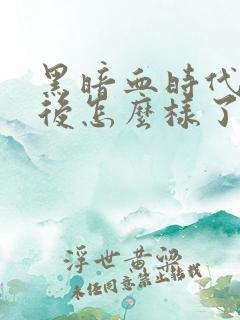 黑暗血時代
後怎麼樣了
浮世黄梁
未经同意禁止转载